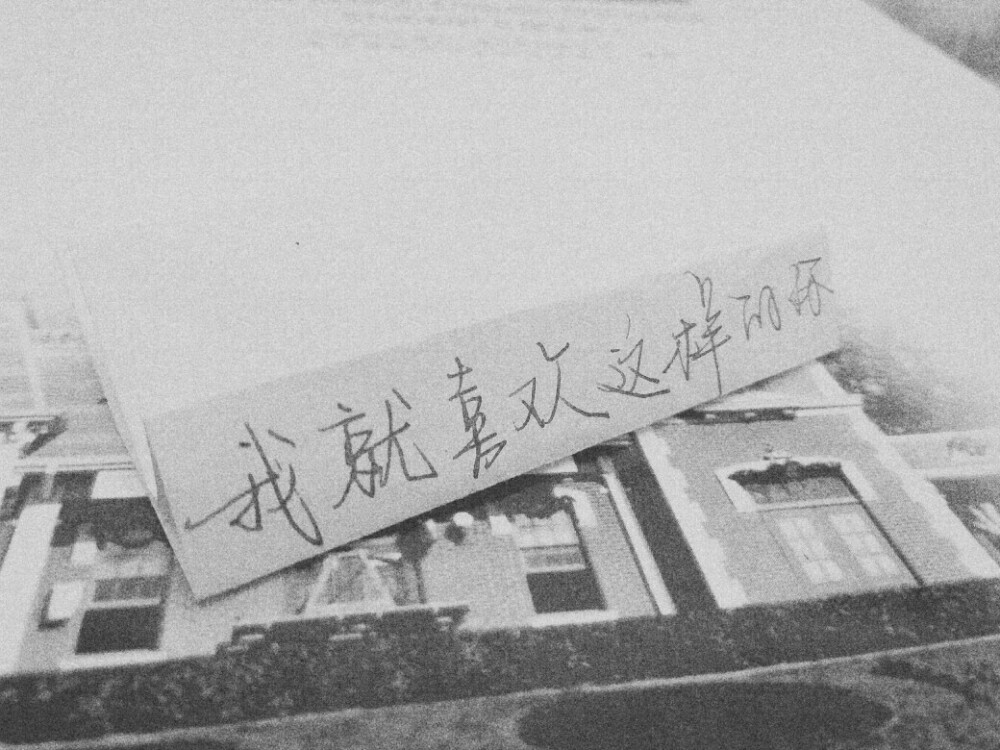 我就喜欢这样的你